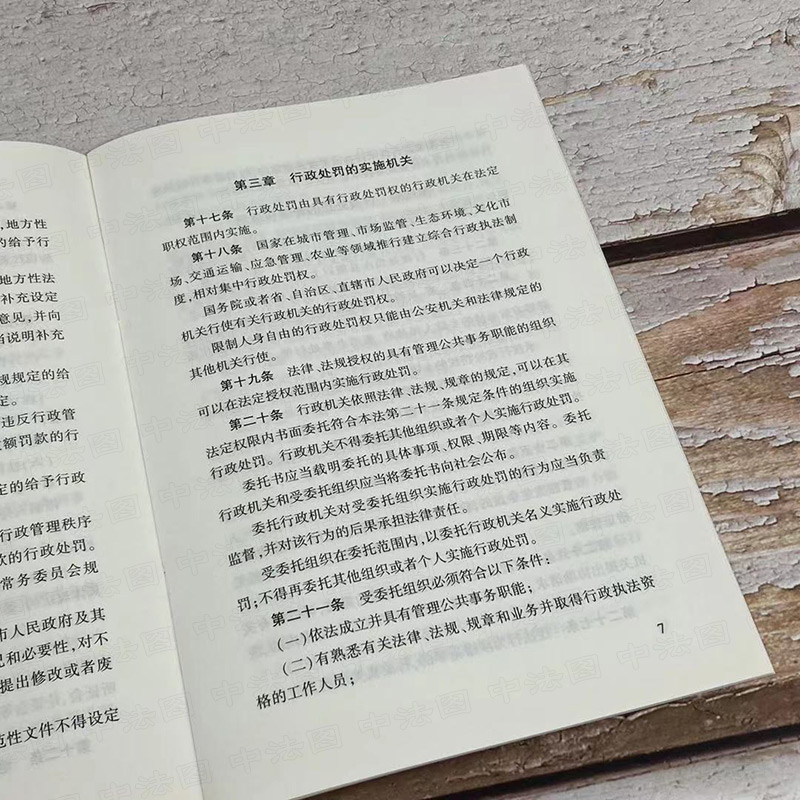 ,地方性
的给予行
地方性法
补充设定
意见,并向
当说明补充
规规定的给
定。
违反行政管
额罚款的行
定的给予行政
行政管理秩序
款的行政处罚。
常务委员会规
市人民政府及其
况和必要性,对不
提出修改或者废
范性文件不得设定
第三章 行政处罚的实施机关
第十七条 行政处罚由具有行政处罚权的行政机关在法定
职权范围内实施。
第十八条 国家在城市管理、市场监管、生态环境、文化市
场、交通运输、应急管理、农业等领域推行建立综合行政执法制
度,相对集中行政处罚权。
国务院或者省、自治区、直辖市人民政府可以决定一个行政
机关行使有关行政机关的行政处罚权。
限制人身自由的行政处罚权只能由公安机关和法律规定的
其他机关行使。
第十九条 法律、法规授权的具有管理公共事务职能的组织
可以在法定授权范围内实施行政处罚。
第二十条 行政机关依照法律、法规、规章的规定,可以在其
法定权限内书面委托符合本法第二十一条规定条件的组织实施
行政处罚。行政机关不得委托其他组织或者个人实施行政处罚。
委托书应当载明委托的具体事项、权限、期限等内容。委托
行政机关和受委托组织应当将委托书向社会公布。
委托行政机关对受委托组织实施行政处罚的行为应当负责
监督,并对该行为的后果承担法律责任。
受委托组织在委托范围内,以委托行政机关名义实施行政处
罚;不得再委托其他组织或者个人实施行政处罚。
第二十一条 受委托组织必须符合以下条件:
(一)依法成立并具有管理公共事务职能;
(二)有熟悉有关法律、法规、规章和业务并取得行政执法资
格的工作人员;
7
中法图